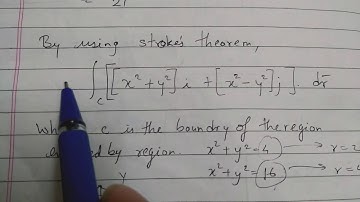 21
By using stroke's theorem,
∫_C [[x²+y²] i + [x²-y²] j]. dr̄
c is the boundry of the region
by region. x²+y²=4 → r=2
x²+y²=16 → r=4
y